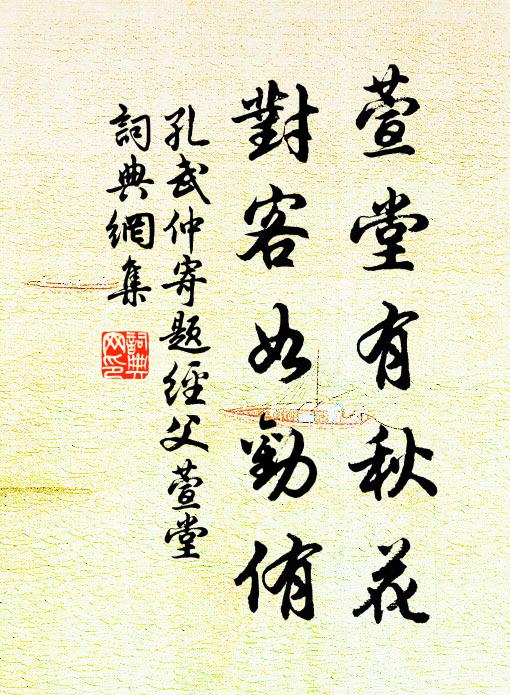 萱堂有秋花
對客如勸侑
孔武仲寄題經父萱堂
詞典網集
詞典
网印